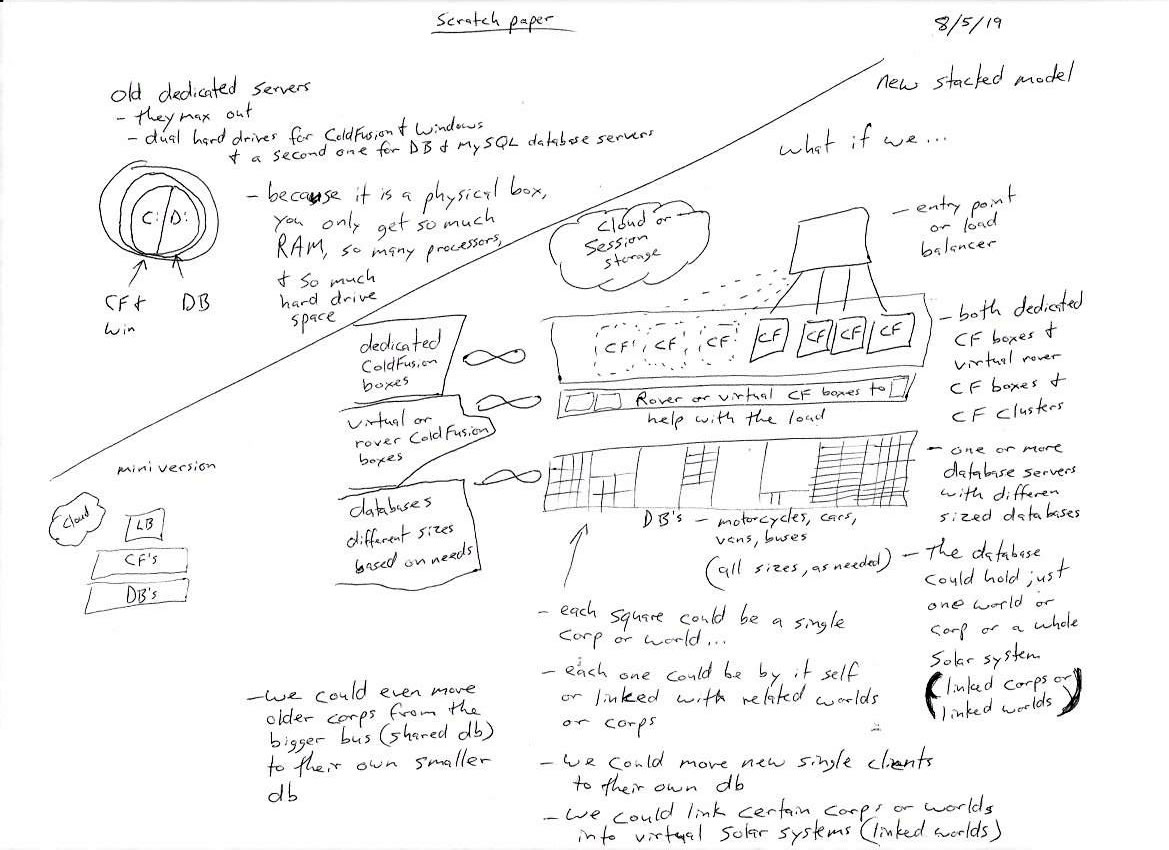 Scratch paper
8/5/19
old dedicated servers
- they max out
- dual hard drives for ColdFusion & Windows
& a second one for DB & MySQL database servers
C: D:
CF &
Win
DB
- because it is a physical box,
you only get so much
RAM, so many processors,
& so much
hard drive
space
new stacked model
what if we...
Cloud or
Session
storage
- entry point
or load
balancer
dedicated
ColdFusion
boxes
∞
CF CF CF CF CF CF CF
- both dedicated
CF boxes &
virtual rover
CF boxes &
CF clusters
virtual or
rover ColdFusion
boxes
∞
Rover or virtual CF boxes to
help with the load
databases
different sizes
based on needs
∞
DB's - motorcycles, cars,
vans, buses
(all sizes, as needed)
- one or more
database servers
with differen
sized databases
- The database
could hold just
one world or
corp or a whole
Solar system
(linked corps or
linked worlds)
mini version
Cloud
LB
CF's
DB's
- we could even move
older corps from the
bigger bus (shared db)
to their own smaller
db
- each square could be a single
corp or world...
- each one could be by it self
or linked with related worlds
or corps
- we could move new single clients
to their own db
- we could link certain corps or worlds
into virtual solar systems (linked worlds)